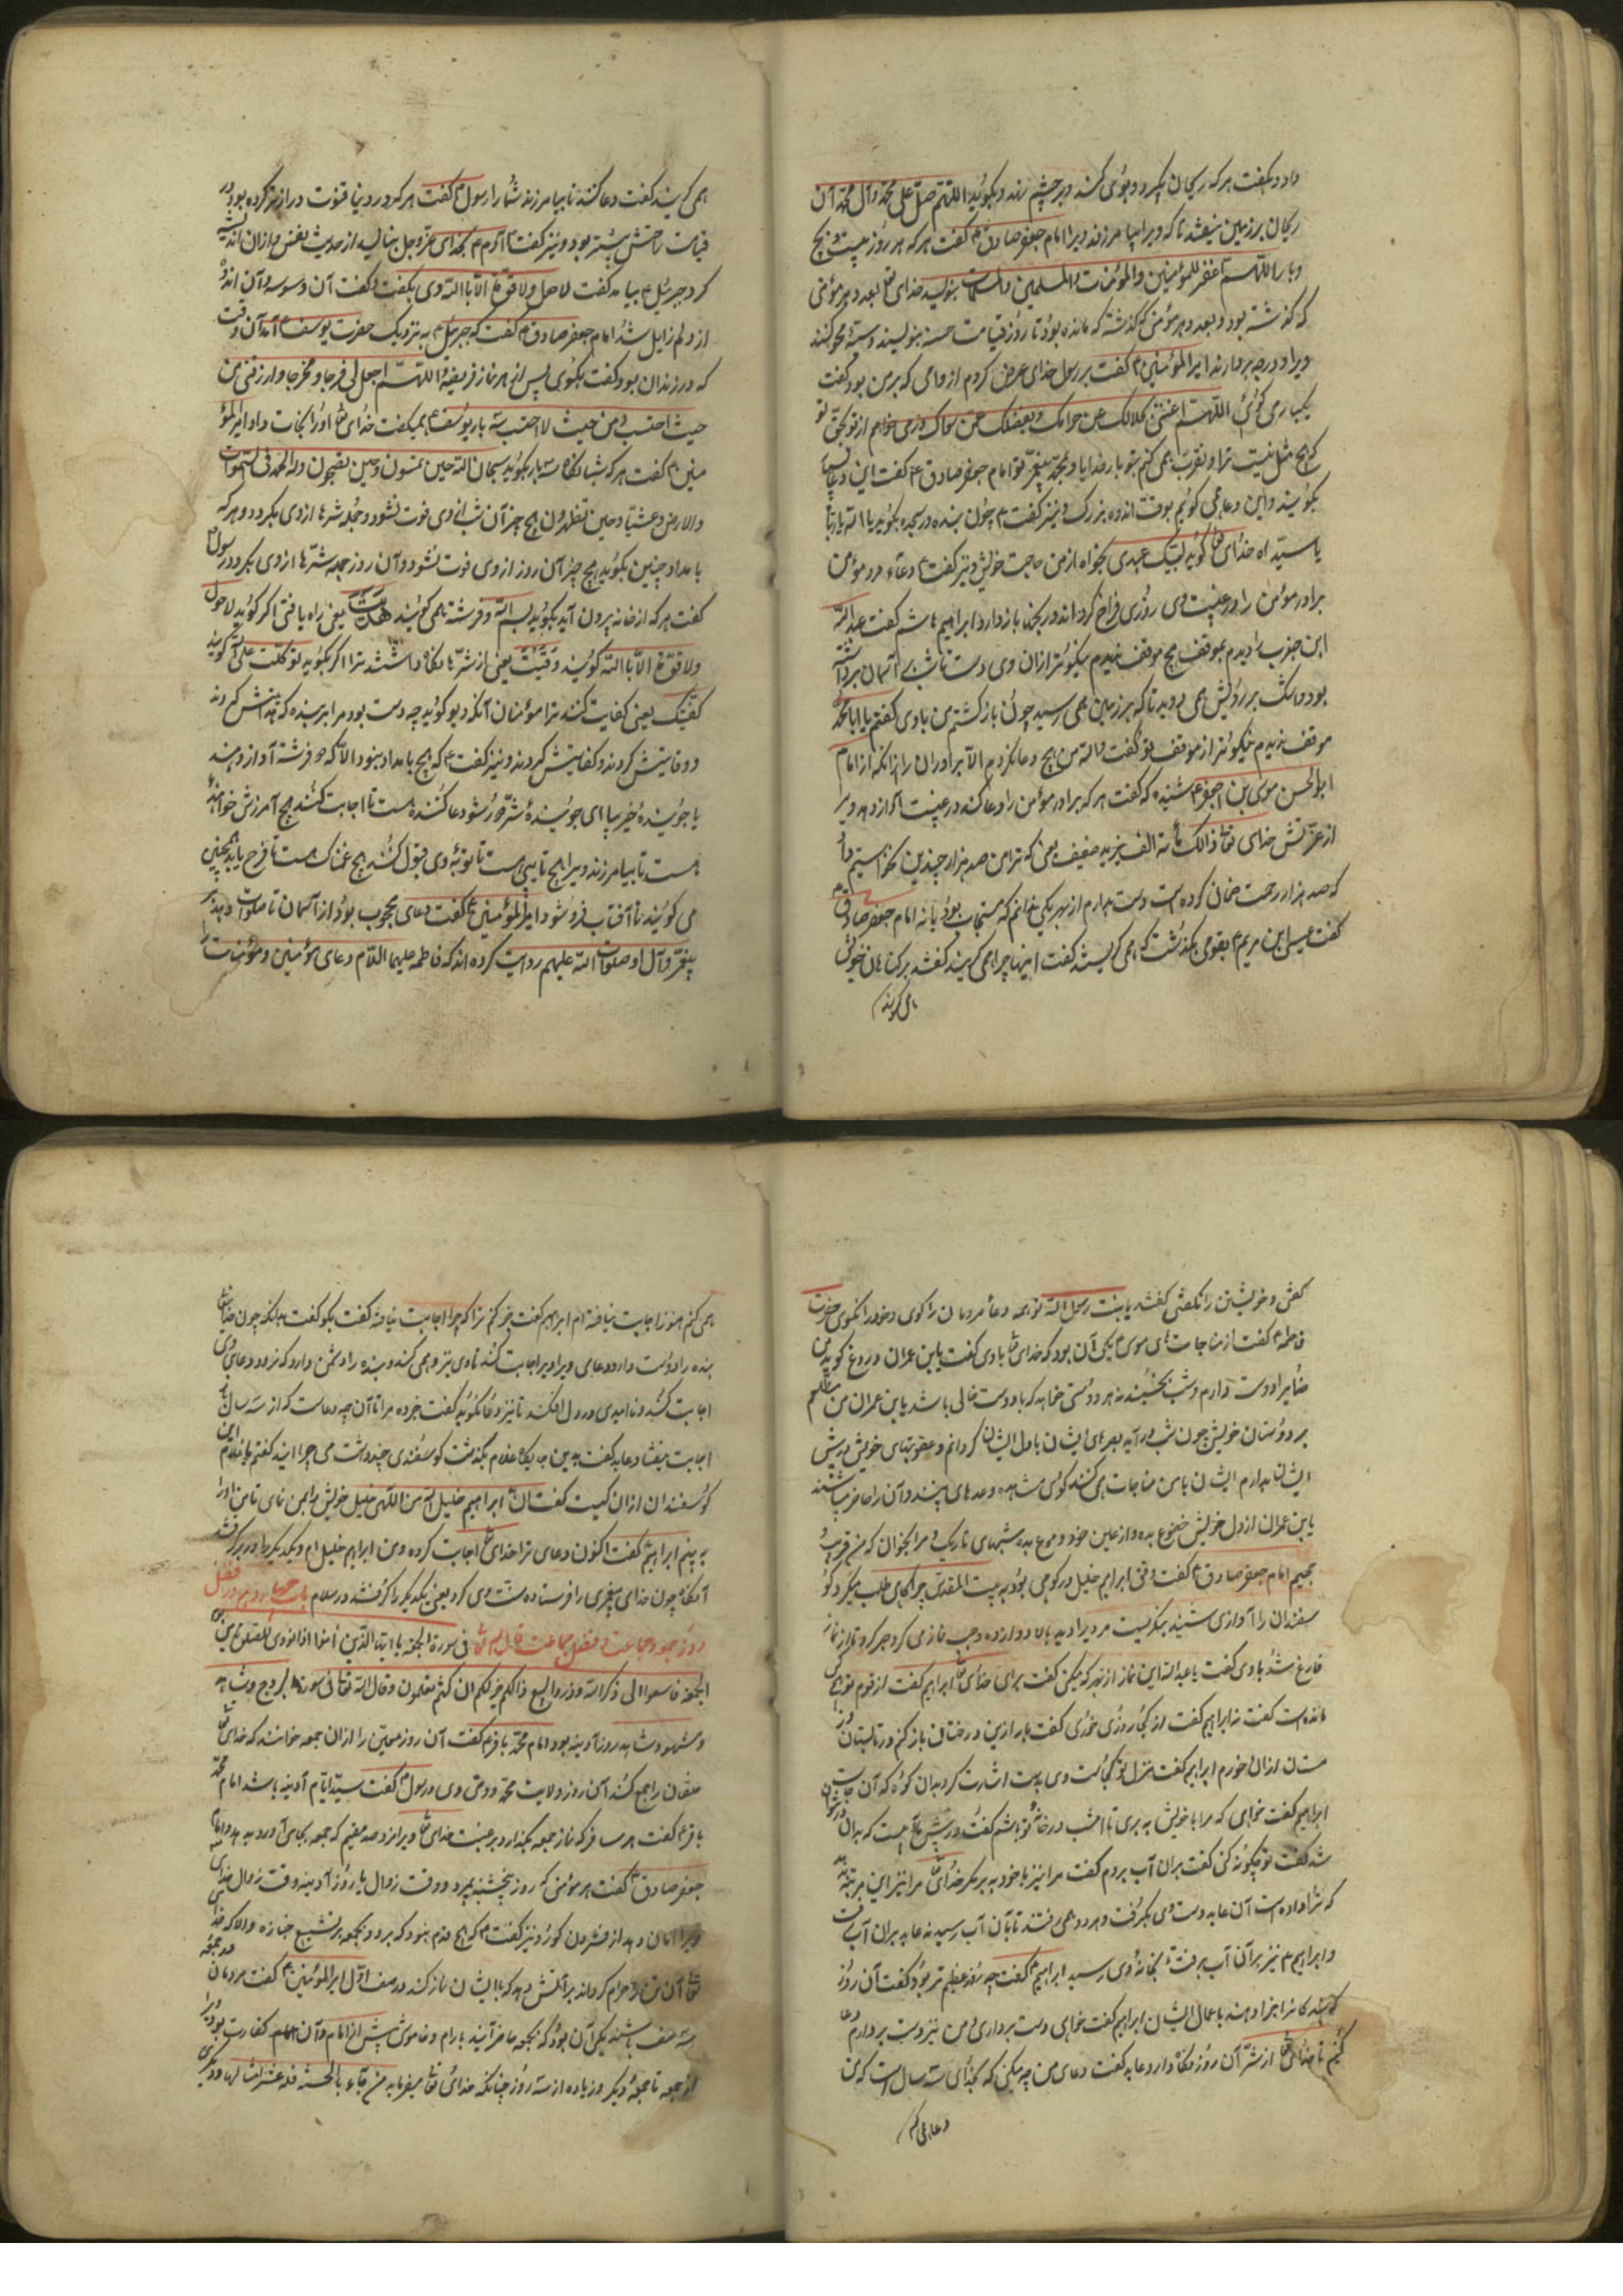 داد و بگفت هر که ریحان بگیرد و ببوی کند و بر چشم نهد و بگوید اللّهمّ صلّ علی محمّد وآل محمّد آن
ریحان بر زمین نیفتد تا که ویرا بیامرزند ویرا امام جعفر صادق ع گفت هر که هر روز بیست و پنج
وبار اللّهمّ اغفر للمؤمنین والمؤمنات والمسلمین والمسلمات بنویسد خدای بعدد هر مؤمنی
که گذشته بود و بعدد هر مؤمنی که گذشته که مانده بود تا روز قیامت حسنه بنویسند و سیّئه محو کنند
ویرا و درجه بردارند امیرالمؤمنین ع گفت بر رسول خدای عرض کردم از وامی که بر من بود گفت
یا علی اللّهمّ اغننی بحلالک عن حرامک وبفضلک عن سواک
که هیچ مثل نیست ترا و تقرب همی کنم بتو بار خدایا و بمحمّد پیغمبر تو امام جعفر صادق ع گفت این دعا
بگویید واین دعا همی گوئیم بوقت اندوه بزرگ و نیز گفت ع چون بنده در سجده بگوید یا اللّه یا ربّاه
یا سیّداه خدای تعا گوید لبّیک عبدی بخواه از من حاجت خویش و نیز گفت ع دعاء مرد مؤمن
برادر مؤمن را در غیبت وی روزی فراخ گرداند و رنجها باز دارد ابراهیم هاشم گفت عبداللّه
ابن جندب را دیدم بموقف هیچ موقف ندیدم نیکوتر از آن وی دست باسمان برداشته
بود و اشک بر رویش همی دوید تا که بر زمین همی رسید چون باز گشتم من باوی گفتم یا ابا محمّد
موقف ندیدم نیکوتر از موقف تو گفت واللّه من هیچ دعا نکردم الّا برادران را زانکه از امام
ابوالحسن موسی بن جعفر ع شنیدم که گفت هر که برادر مؤمن را دعا کند در غیبت آواز دهد ویرا
از عرش خدای تعا ولک مأته الف مزید ضعیف یعنی که ترا من صد هزار چندین
که صد هزار رحمت ضمان کرده است دست بدارم از بهر یکی ندانم که مستجاب بود یا نه امام جعفر صادق ع
گفت عیسی ابن مریم ع بقومی بگذشت که همی گریستند گفت اینها چرا همی گریند گفتند بر گناهان خویش
همی گریند
همی گریند گفت دعا کنند تا بیامرزند شما را رسول ع گفت هر که در دنیا قنوت درازتر کرده بود در
قیامت راحتش بیشتر بود و نیز گفت آدم ع بخدای عزّوجل بنالید از حدیث نفس و از آن اندیشه
کرد جبرئیل ع بیامد گفت لا حول ولا قوّة الّا باللّه وی بگفت و گفت آن وسوسه وآن اندوه
از دلم زایل شد امام جعفر صادق ع گفت که جبرئیل ع به نزدیک حضرت یوسف ع آمد آن وقت
که در زندان بود گفت بگوی پس از هر نماز فریضه اللّهمّ اجعل لی فرجا ومخرجا وارزقنی من
حیث احتسب ومن حیث لا احتسب سه بار یوسف ع همی گفت خدای تعا او را نجات داد امیرالمؤ
منین ع گفت هر که شبانگاه سه بار بگوید سبحان اللّه حین تمسون وحین تصبحون وله الحمد فی السّموات
والارض وعشیّا وحین تظهرون هیچ چیز آن شب از وی فوت نشود و جمله شرها از وی بگردد و هر که
بامداد چنین بگوید هیچ چیز آن روز از وی فوت نشود وآن روز جمله شرّها از وی بگردد رسول ع
گفت هر که از خانه بیرون آید بگوید بسم اللّه فرشته همی گویند هُدیتَ یعنی راه یافتی اگر گوید لا حول
ولا قوّة الّا باللّه گویند وُقیتَ یعنی از شرّها نگاه داشتند ترا اگر بگوید توکّلت علی اللّه گویند
کفیتک یعنی کفایت کنند ترا مؤمنان آنگه دیو گوید چه دست بود مرا بر بنده که
و وقایتش کردند و کفایتش کردند و نیز گفت ع که هیچ بامداد نبود الّا که دو فرشته آواز دهند
یا جویندهٔ خیر بیا ای جویندهٔ شرّ دور شو دعا کننده هست تا اجابت کنند هیچ آمرزش خواهنده
هست تا بیامرزند ویرا هیچ تایبی هست تا توبهٔ وی قبول کنند هیچ غمناک هست تا فرح یابد همچنین
می گویند تا آفتاب فرو شود امیرالمؤمنین ع گفت دعای محجوب بود از آسمان تا صلوات دهند بر
پیغمبر وآل او صلوات اللّه علیهم روایت کرده اند که فاطمه علیها السّلام دعای مؤمنین و مؤمنات را
گفتی و خویشتن را نگفتی گفتند یا بنت رسول اللّه تو همه دعا مردمان را گوی و خود را نگوی حضرت
فاطمه ع گفت از مناجات های موسی ع یکی آن بود که خدای تعا باوی گفت یا ابن عمران دروغ گوید من
خدایرا دوست دارم و شب بخسبند نه هر دوستی خواهد که با دوست خالی باشد یا ابن عمران من مطّلعم
بر دوستان خویش چون شب در آید بصرهای ایشان با دل ایشان گردانم و عقوبتهای خویش در پیش
ایشان بدارم ایشان با من مناجات همی کنند گوئی مشاهده و وعدهای بینند وآن را حاضر باشند
یا ابن عمران از دل خویش خضوع بده و از عین خود دموع بده شبهای تاریک و مرا بخوان که من قریب و
مجیبم امام جعفر صادق ع گفت وقتی ابراهیم خلیل در کوهی بود به بیت المقدّس چراگاهی طلب میکرد گو
سفندان را آوازی شنید بنگریست مردیرا دید بالا دوازده وجب نماز می کرد صبر کرد تا از نماز
فارغ شد باوی گفت یا عبداللّه این نماز از بهر که میکنی گفت برای خدای تعا ابراهیم گفت از قوم تو کسی
مانده است گفت نه ابراهیم گفت از کجا روزی خوری گفت بار ازین درختان باز کنم در تابستان و زم
ستان از آن خورم ابراهیم گفت منزل تو کجاست وی بدست اشارت کرد بدان کوه که آن جاست
ابراهیم گفت خواهی که مرا با خویش به بری تا امشب در خانهٔ تو باشم گفت در پیش آبیست که بدان دشوار
شد گفت تو چگونه کنی گفت بران آب بردم گفت مرا نیز با خود به بر مگر خدای تعا مرا نیز این مرتبه دهد
که ترا داده است آن عابد دست وی بگرفت و هر دو همی رفتند تا بآن آب رسیدند عابد بران آب رفت
و ابراهیم ع نیز بران آب برفت تا بخانهٔ وی رسید ابراهیم ع گفت چه روز عظیم تر بود گفت آن روز
که بندگانرا جزا دهند باعمال ایشان ابراهیم گفت خواهی دست برداری و من نیز دست بردارم و دعا
کنیم تا خدای تعا از شرّ آن روز نگاه دارد عابد گفت دعای من چه میکنی که بخدای سه سال است که من
دعا همی کنم
همی کنم هنوز اجابت نیافته ام ابراهیم گفت خبر کنم ترا که چرا اجابت نیافته گفت بگو گفت بدانکه چون خدای تعا
بنده را دوست دارد دعای ویرا دیر اجابت کند تا وی نیز همی کند و بنده را دشمن دارد که زود دعای وی
اجابت کند و نا امیدی در دل افکند تا نیز دعا نگوید گفت خبر ده مرا تا آن چه دعاست که از سه سال باز
اجابت نیفتاد عابد گفت بدین جایگاه غلام بگذشت گوسفندی چند داشت می چرانید گفتم یا غلام این
گوسفندان از آن کیست گفت از آن ابراهیم خلیل اللّه من اللّهی خلیل خویش را بمن نمای تا من او را
به بینم ابراهیم گفت اکنون دعای ترا خدای تعا اجابت کرده و من ابراهیم خلیل ام و یکدیگر را در بر گرفتند
آنگاه چون خدای پیغمبری را فرستاده سنّت وی کرد یعنی یکدیگر را گرفتند در سلام باب چهارم در فضل
روز جمعه و جماعت و فضل جماعت قال اللّه تعا فی سورة الجمعه یا ایّها الّذین آمنوا اذا نودی للصّلوة من یوم
الجمعة فاسعوا الی ذکر اللّه وذروا البیع ذالکم خیر لکم ان کنتم تعلمون وقال اللّه تعا فی سورة البروج وشاهد
ومشهود شاهد روز آدینه بود امام محمّد باقر ع گفت آن روز معیّن را از آن جمعه خوانند که خدای تعا
خلقان را جمع کند آن روز و ولایت محمّد و وصی وی و رسول ع گفت سیّد ایّام آدینه باشد امام محمّد
باقر ع گفت هر مسافر که نماز جمعه بگذارد بر غبت خدای تعا ویرا مزد صد مقیم که جمعه بجای آورد بدهد و امام
جعفر صادق ع گفت هر مؤمنی که روز پنجشنبه بمیرد و وقت زوال یا روز آدینه وقت زوال خدای تعا
ویرا امان دهد از فشردن گور و نیز گفت ع که هیچ قدم نبود که برود بجمعه بر تشییع جنازه والا که خدای
تعا آن تن را حرام گرداند بر آتش دهد که با ایشان نماز کند در صف اوّل امیرالمؤمنین ع گفت مردمان در جمعه
سه صنف باشند یکی آن بود که بجمعه حاضر آیند بارام و خاموش پیش از امام وآن امام کفّارت بود ویرا
از جمعه تا جمعه دیگر و زیاده از سه روز چنانکه خدای تعا میفرماید من جاء بالحسنة فله عشر امثالها و دیگری